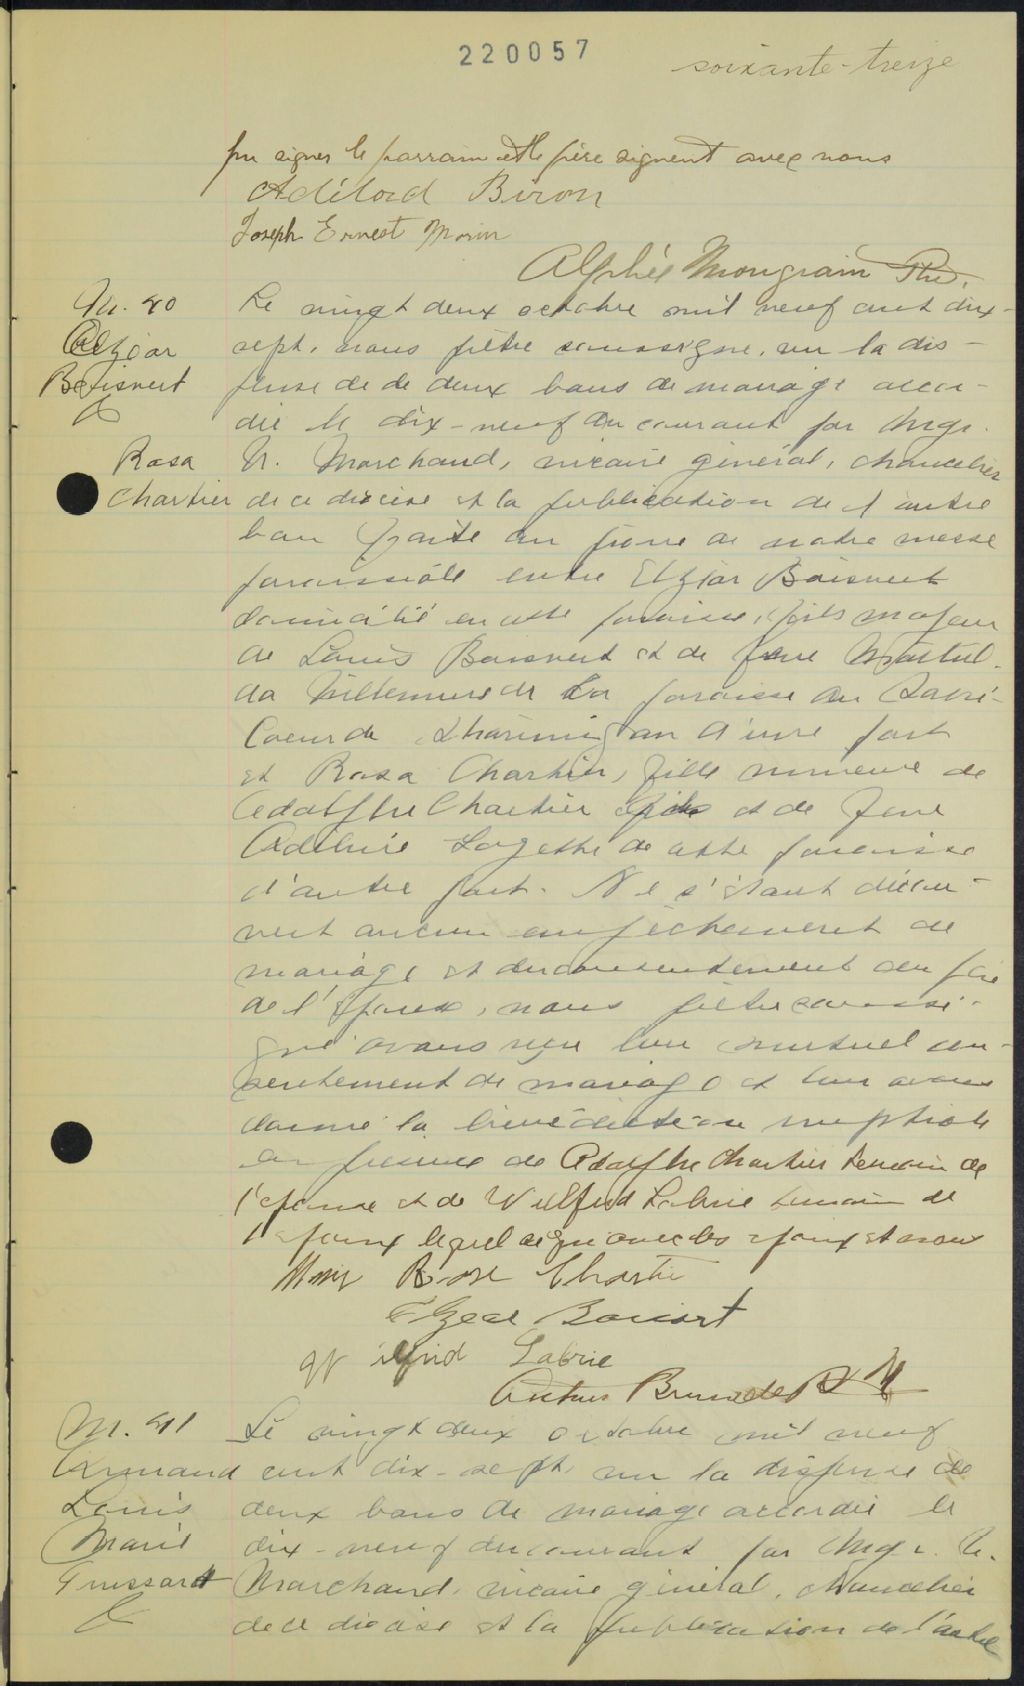 220057
soixante-treize
pu signer le parrain et le père signent avec nous
Adélord Biron
Joseph Ernest Morin
Alphée Mongrain Ptre.
M. 40
Elzéar
Boisvert
&
Rosa
Chartier
Le vingt deux octobre mil neuf cent dix-
sept, nous prêtre soussigné, vu la dis-
pense de de deux bans de mariage accor-
dée le dix-neuf du courant par Mgr.
U. Marchand, vicaire général, chancelier
de ce diocèse et la publication de l'autre
ban faite au prône de notre messe
paroissiale entre Elzéar Boisvert
domicilié en cette paroisse, fils majeur
de Louis Boisvert et de feue
Villemure de la paroisse du Sacré-
Coeur de Shawinigan d'une part
et Rosa Chartier, fille mineure de
Adolphe Chartier et de feue
Adélaïe de cette paroisse
d'autre part. Ne s'étant décou-
vert aucun empêchement de
mariage et du consentement du père
de l'épouse, nous prêtre soussi-
gné avons reçu leur mutuel con-
sentement de mariage et leur avons
donné la bénédiction nuptiale
en présence de Adolphe Chartier témoin de
l'épouse et de Wilfrid Labrie témoin de
l'époux lequel signe avec les époux et nous
Mary Rose Chartier
Elzear Boivert
Wilfrid Labrie
M. 41
Armand
Louis
Marie
Trussart
&
Le vingt deux octobre mil neuf
cent dix-sept, vu la dispense de
deux bans de mariage accordée le
dix-neuf du courant par Mgr. U.
Marchand, vicaire général, chancelier
de ce diocèse et la publication de l'autre